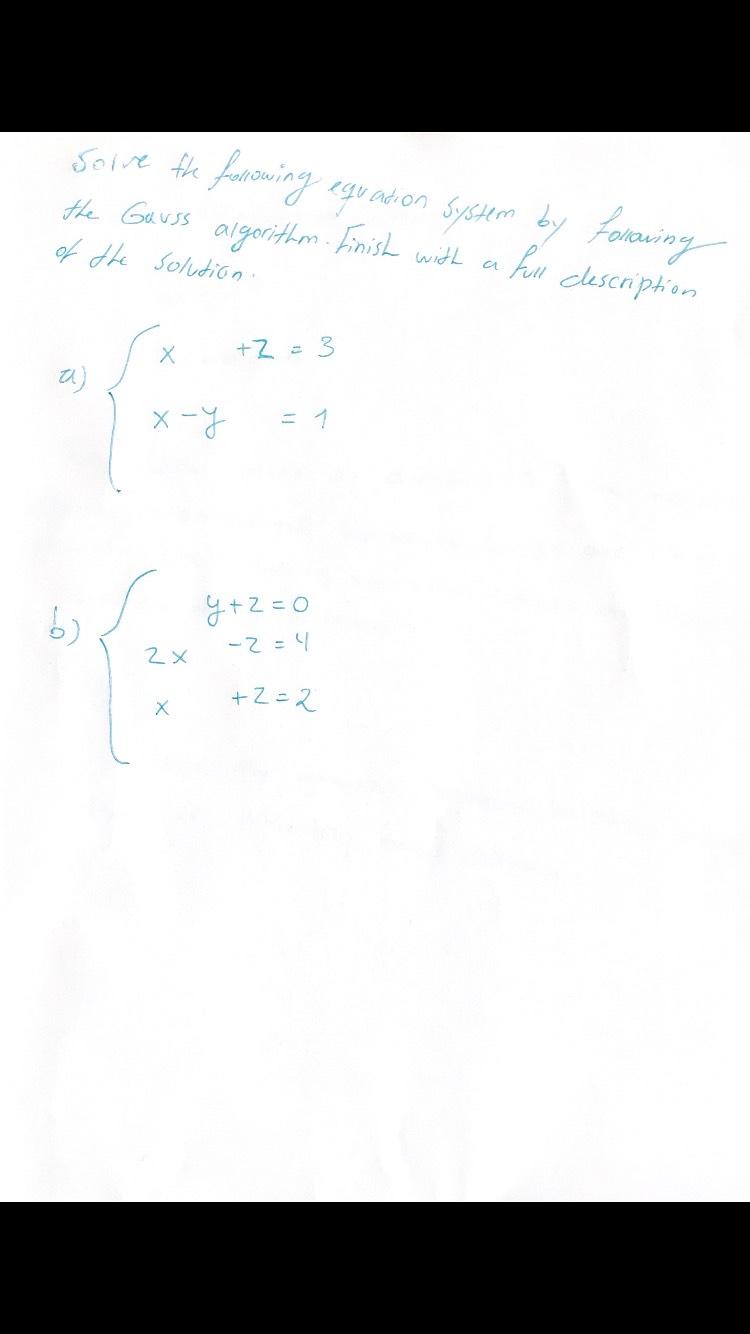 Solve the following equation system by following
the Gauss algorithm. Finish with a full description
of the solution.
a) { x +z = 3
x - y = 1
b) { y + z = 0
2x - z = 4
x + z = 2